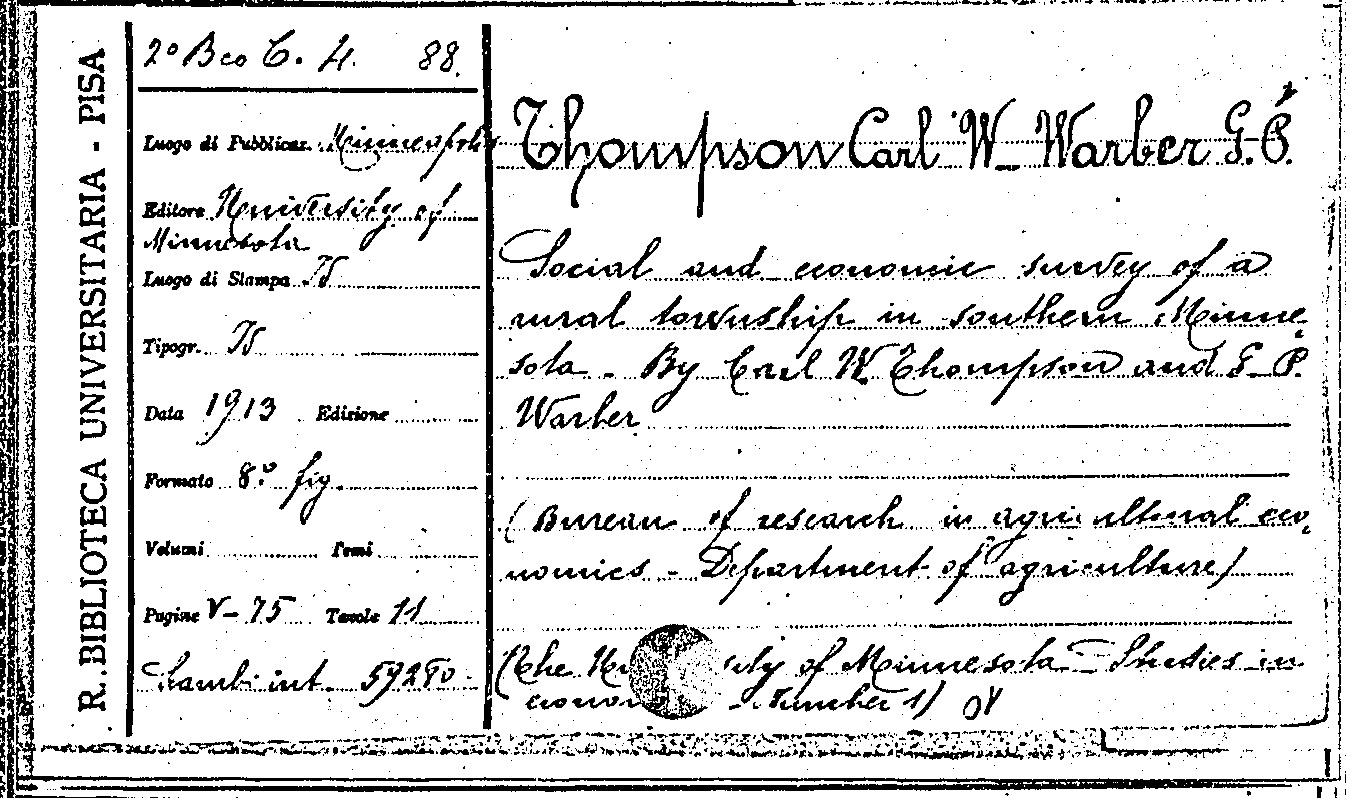 R. BIBLIOTECA UNIVERSITARIA - PISA
2° Bco C. 4. 88.
Luogo di Pubblicaz. Minneapolis
Editore University of
Minnesota
Luogo di Stampa Id
Tipogr. Id
Data 1913 Edizione
Formato 8° fig.
Volumi Tomi
Pagine V-75 Tavole 11
Cambi int. 59280
Thompson Carl W_ Warber G. P.
Social and economic survey of a
rural township in southern Minne
sota - By Carl W. Thompson and G. P.
Warber
(Bureau of research in agricultural eco
nomics - Department of agriculture)
(The of Minnesota - Studies in
- Number 1)